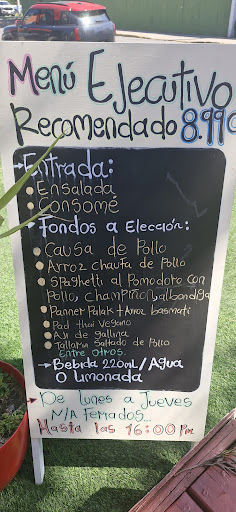 Menú Ejecutivo
Recomendado 8.990
Entrada:
Ensalada
Consomé
Fondos a Elección:
Causa de Pollo
Arroz chaufa de Pollo
Spaghetti al Pomodoro con
Pollo, champiñon, albondiga
Panner Palak + Arroz basmati
Pad thai vegano
Aji de gallina
Tallarin Saltado de Pollo
Entre otros.
Bebida 220ml/Agua
O limonada
De lunes a Jueves
N/A Feriados...
Hasta las 16:00 P.M.